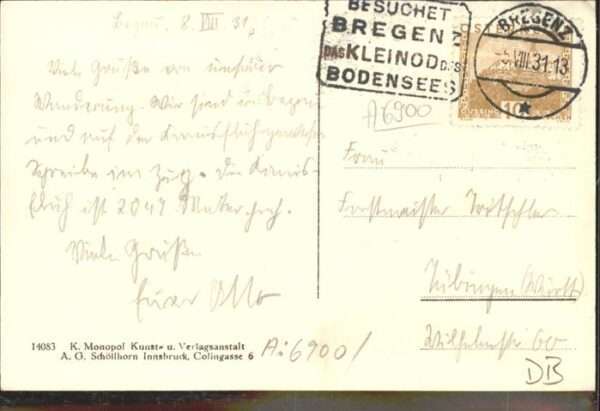 Bregenz, 8. VIII 31.
Viele Grüße von unserer
Wanderung. Wir sind in Bregenz
und auf der
Schreibe im Zug. Die Kanis-
fluh ist 2047 Meter hoch.
Viele Grüße
Euer Otto
BESUCHET
BREGENZ
DAS KLEINOD DES
BODENSEES
BREGENZ
VIII.31.13
10
A6900
Frau
Forstmeister
Tübingen (Württ)
Wilhelmstr 60
14083 K. Monopol Kunst- u. Verlagsanstalt
A. G. Schöllhorn Innsbruck, Colingasse 6
A:6900/
DB